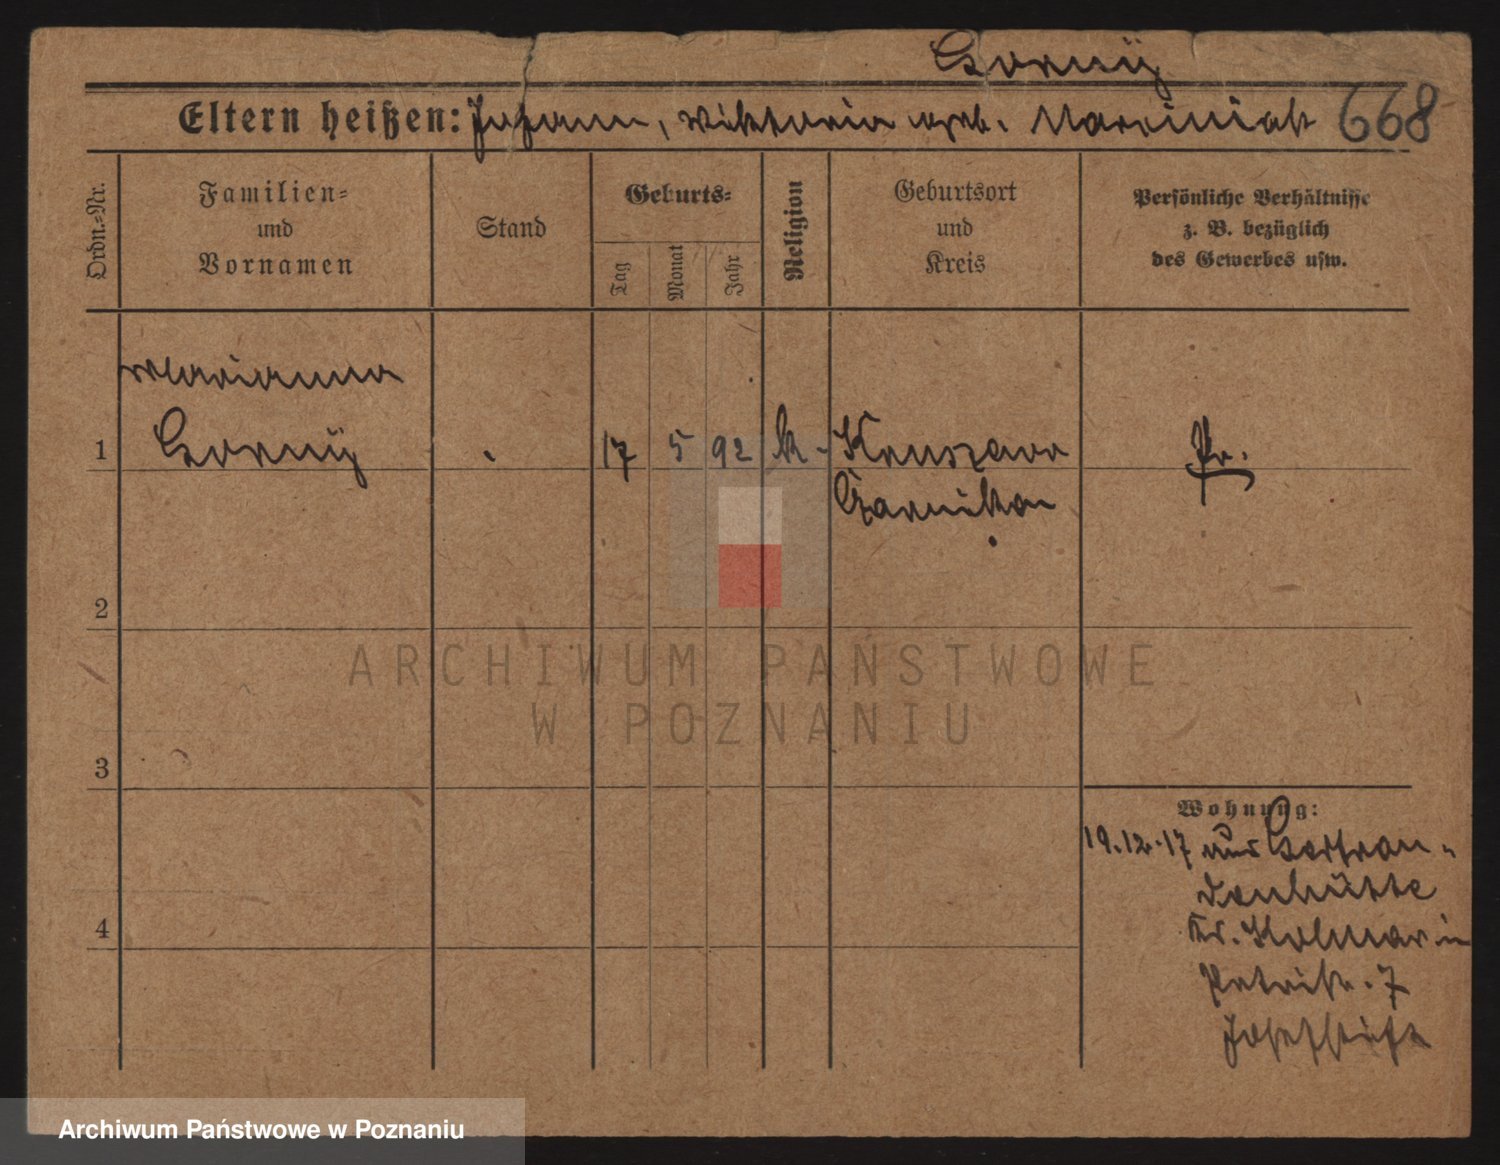 Gorny
Eltern heißen: Johann, Wiktoria geb. Marciniak 668
Ordn.-Nr.
Familien-
und
Vornamen
Stand
Geburts-
Tag
Monat
Jahr
Religion
Geburtsort
und
Kreis
Persönliche Verhältnisse
z. B. bezüglich
des Gewerbes usw.
Marianna
1 Gorny 17 5 92 k. Pr.
Czarnikau
2
ARCHIWUM PAŃSTWOWE
W POZNANIU
3
Wohnung:
19.12.17 aus
4
Kr. Kolmar in
Petristr. 7
Josefstift
Archiwum Państwowe w Poznaniu